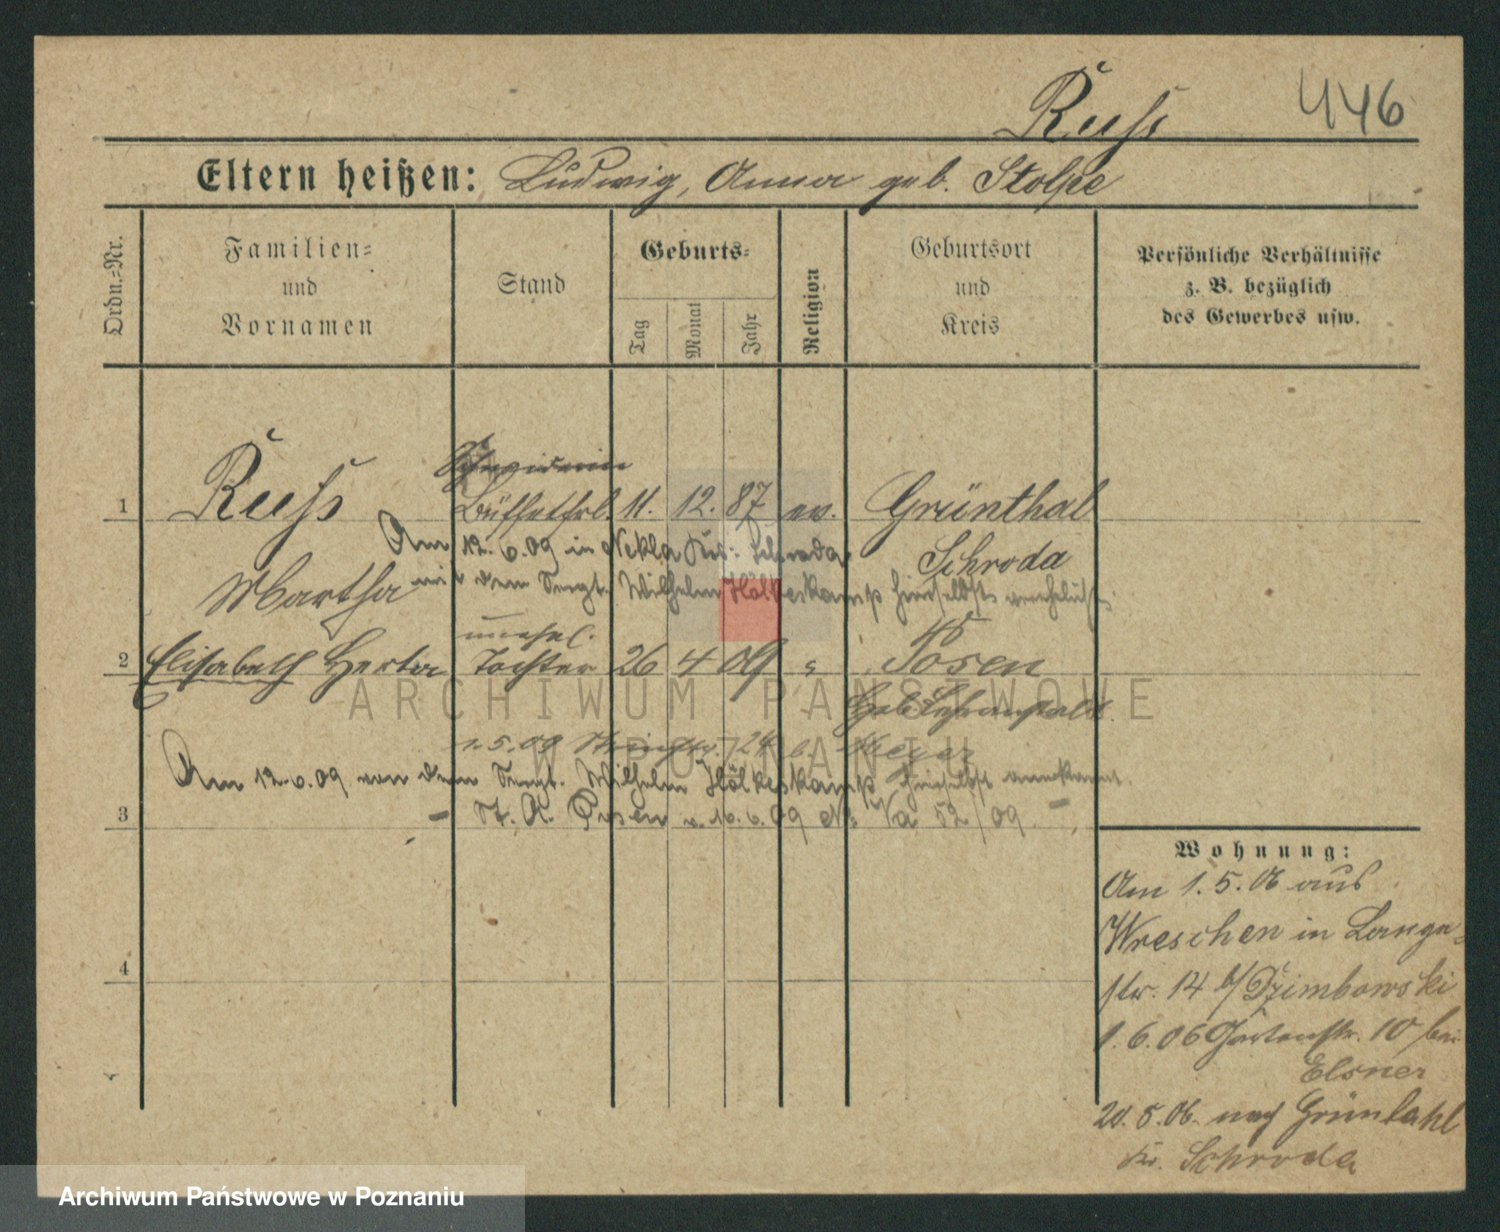 Russ 446
Eltern heißen: Ludwig, Anna geb. Stolpe
Ordn.-Nr.
Familien-
und
Vornamen
Stand
Geburts-
Tag
Monat
Jahr
Religion
Geburtsort
und
Kreis
Persönliche Verhältnisse
z. B. bezüglich
des Gewerbes usw.
Schneiderin
1 Russ Büffetfrl. 11. 12. 87 ev. Grünthal
Am 12.6.09 in Nekla Krs. Schroda
Schroda
Martha
mit dem Sergt. Wilhelm Hölkeskamp hierselbst verehelicht.
unehel.
2 Elisabeth Herta Tochter 26 4 09 " Posen
ARCHIWUM PAŃSTWOWE
Heb. Lehranstalt.
1.5.09 24 b. Meyer
W POZNANIU
Am 12.6.09 von dem Sergt. Wilhelm Hölkeskamp hierselbst anerkannt.
3 – St. A. Posen v. 16.6.09 No Va 52/09. –
Wohnung:
Am 1.5.06 aus
Wreschen in Lange-
str. 14 b/Dzimbowski
1.6.06 Gartenstr. 10 bei
Elsner
4
20.8.06. nach Grünthahl
Kr. Schroda
Archiwum Państwowe w Poznaniu